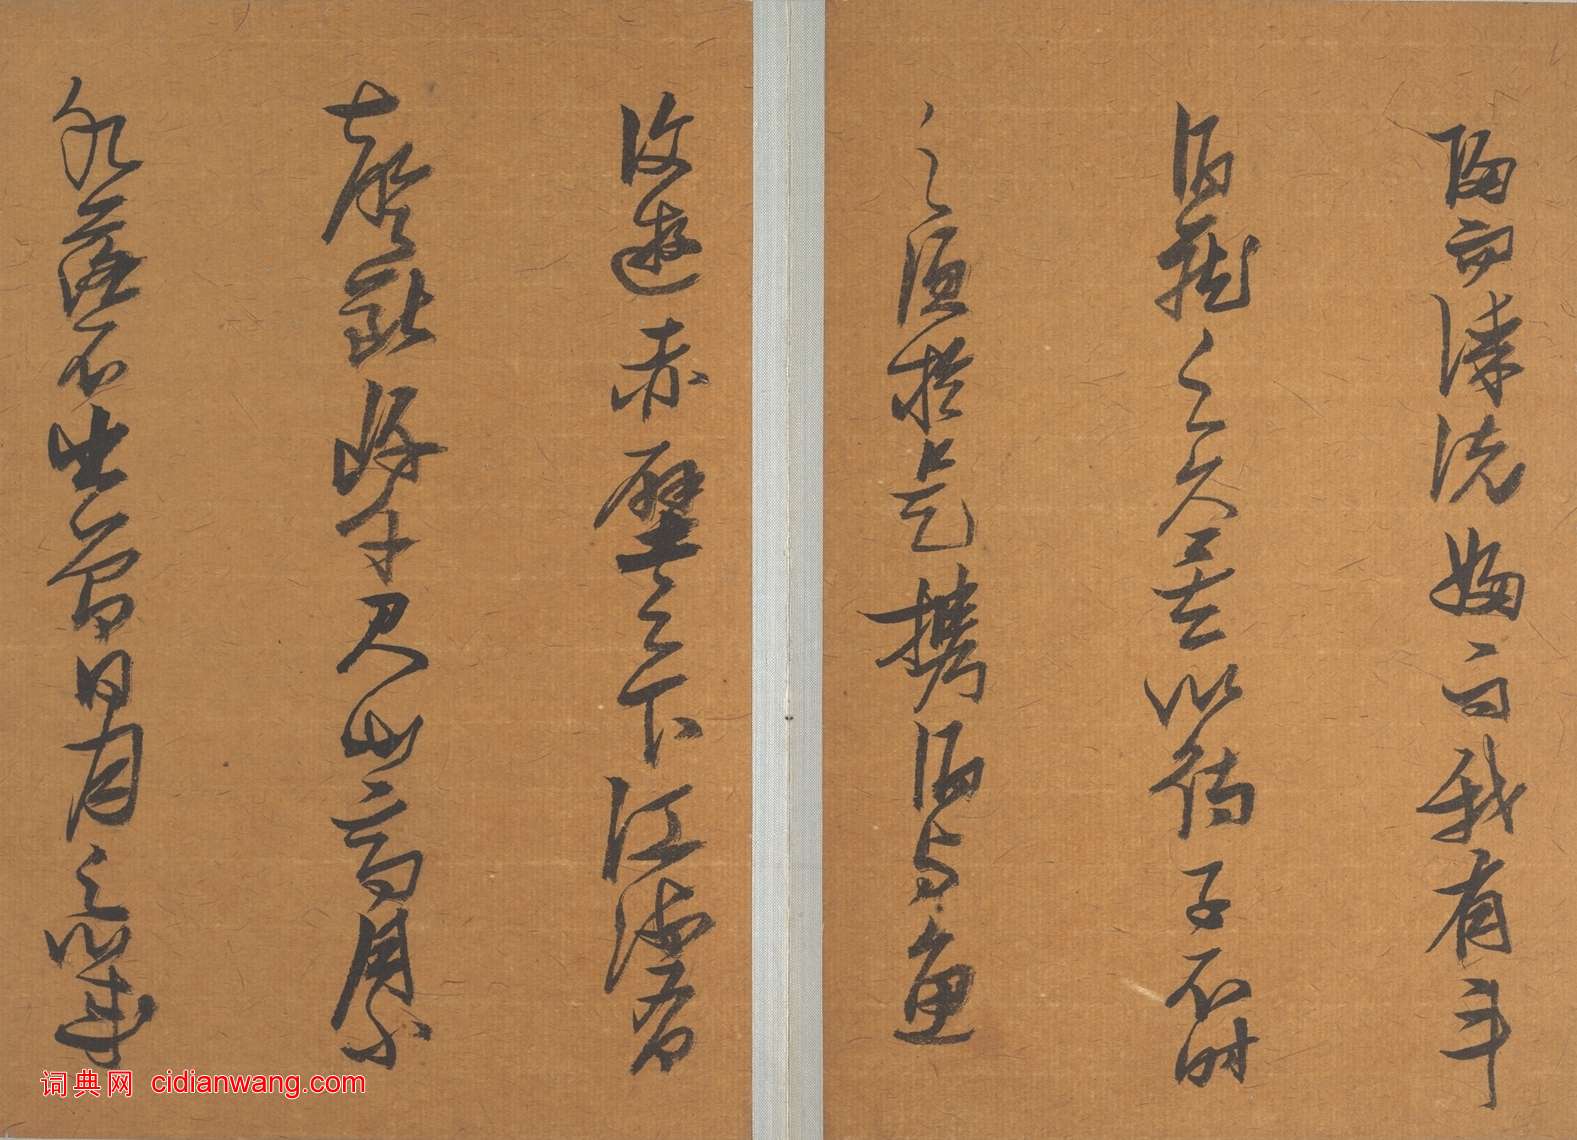 歸而謀諸婦曰我有斗
酒藏之久矣以待子不時
之須於是攜酒與魚
復遊赤壁之下江流有
聲斷岸千尺山高月小
水落石出曾日月之幾
词典网 cidianwang.com